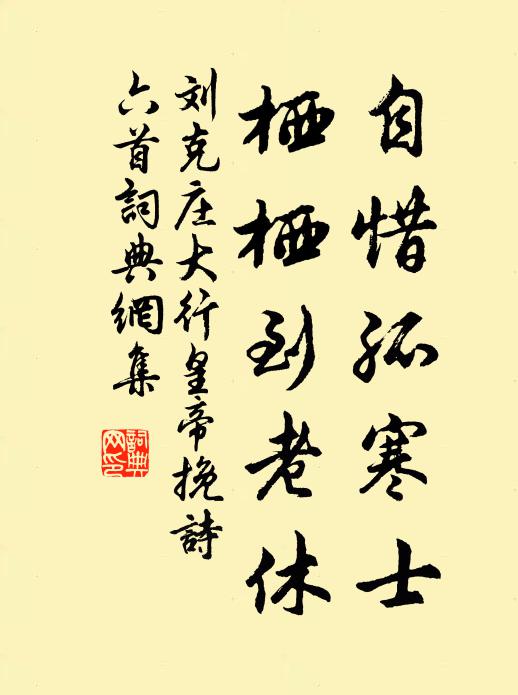 自惜孤寒士
栖栖到老休
刘克庄大行皇帝挽詩
六首詞典網集
詞典
网印